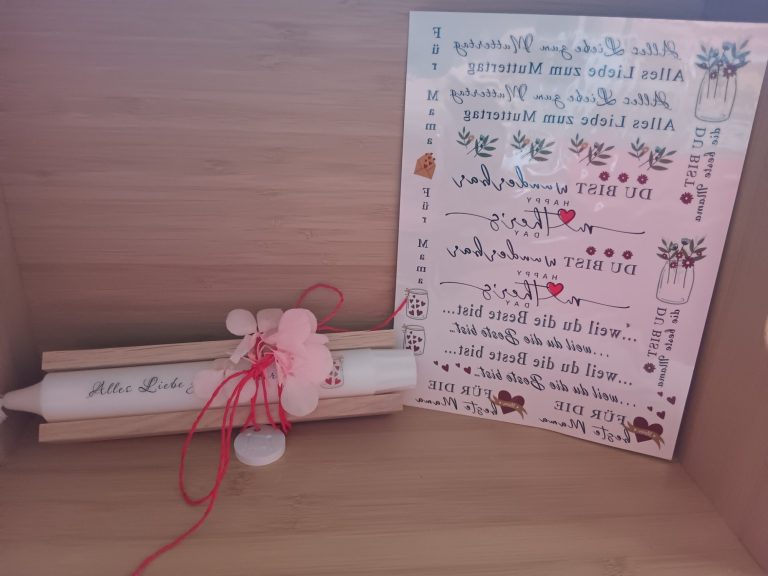 Für Mama
Für Mama
Alles Liebe zum Muttertag
Alles Liebe zum Muttertag
Alles Liebe zum Muttertag
Alles Liebe zum Muttertag
DU BIST wunderbar
HAPPY
mother's
DAY
DU BIST wunderbar
HAPPY
mother's
DAY
...weil du die Beste bist...
...weil du die Beste bist...
...weil du die Beste bist...
...weil du die Beste bist...
FÜR DIE
beste Mama
FÜR DIE
beste Mama
DU BIST
die beste Mama
DU BIST
die beste Mama
Alles Liebe